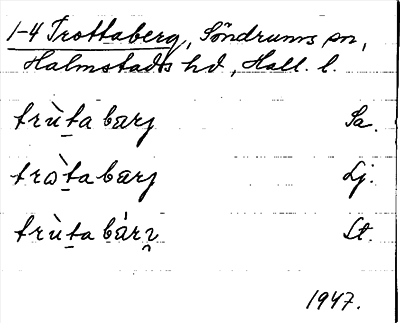 1-4 Trottaberg, Söndrums sn,
Halmstads hd, Hall. l.
trùta bærj Sa.
tròta bærj Lj.
trùta bár Lt.
1947.